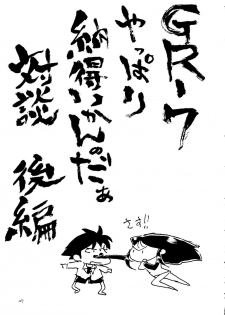 GR-7
やっぱり
納得いかんのだぁ
対談 後編
さす!!